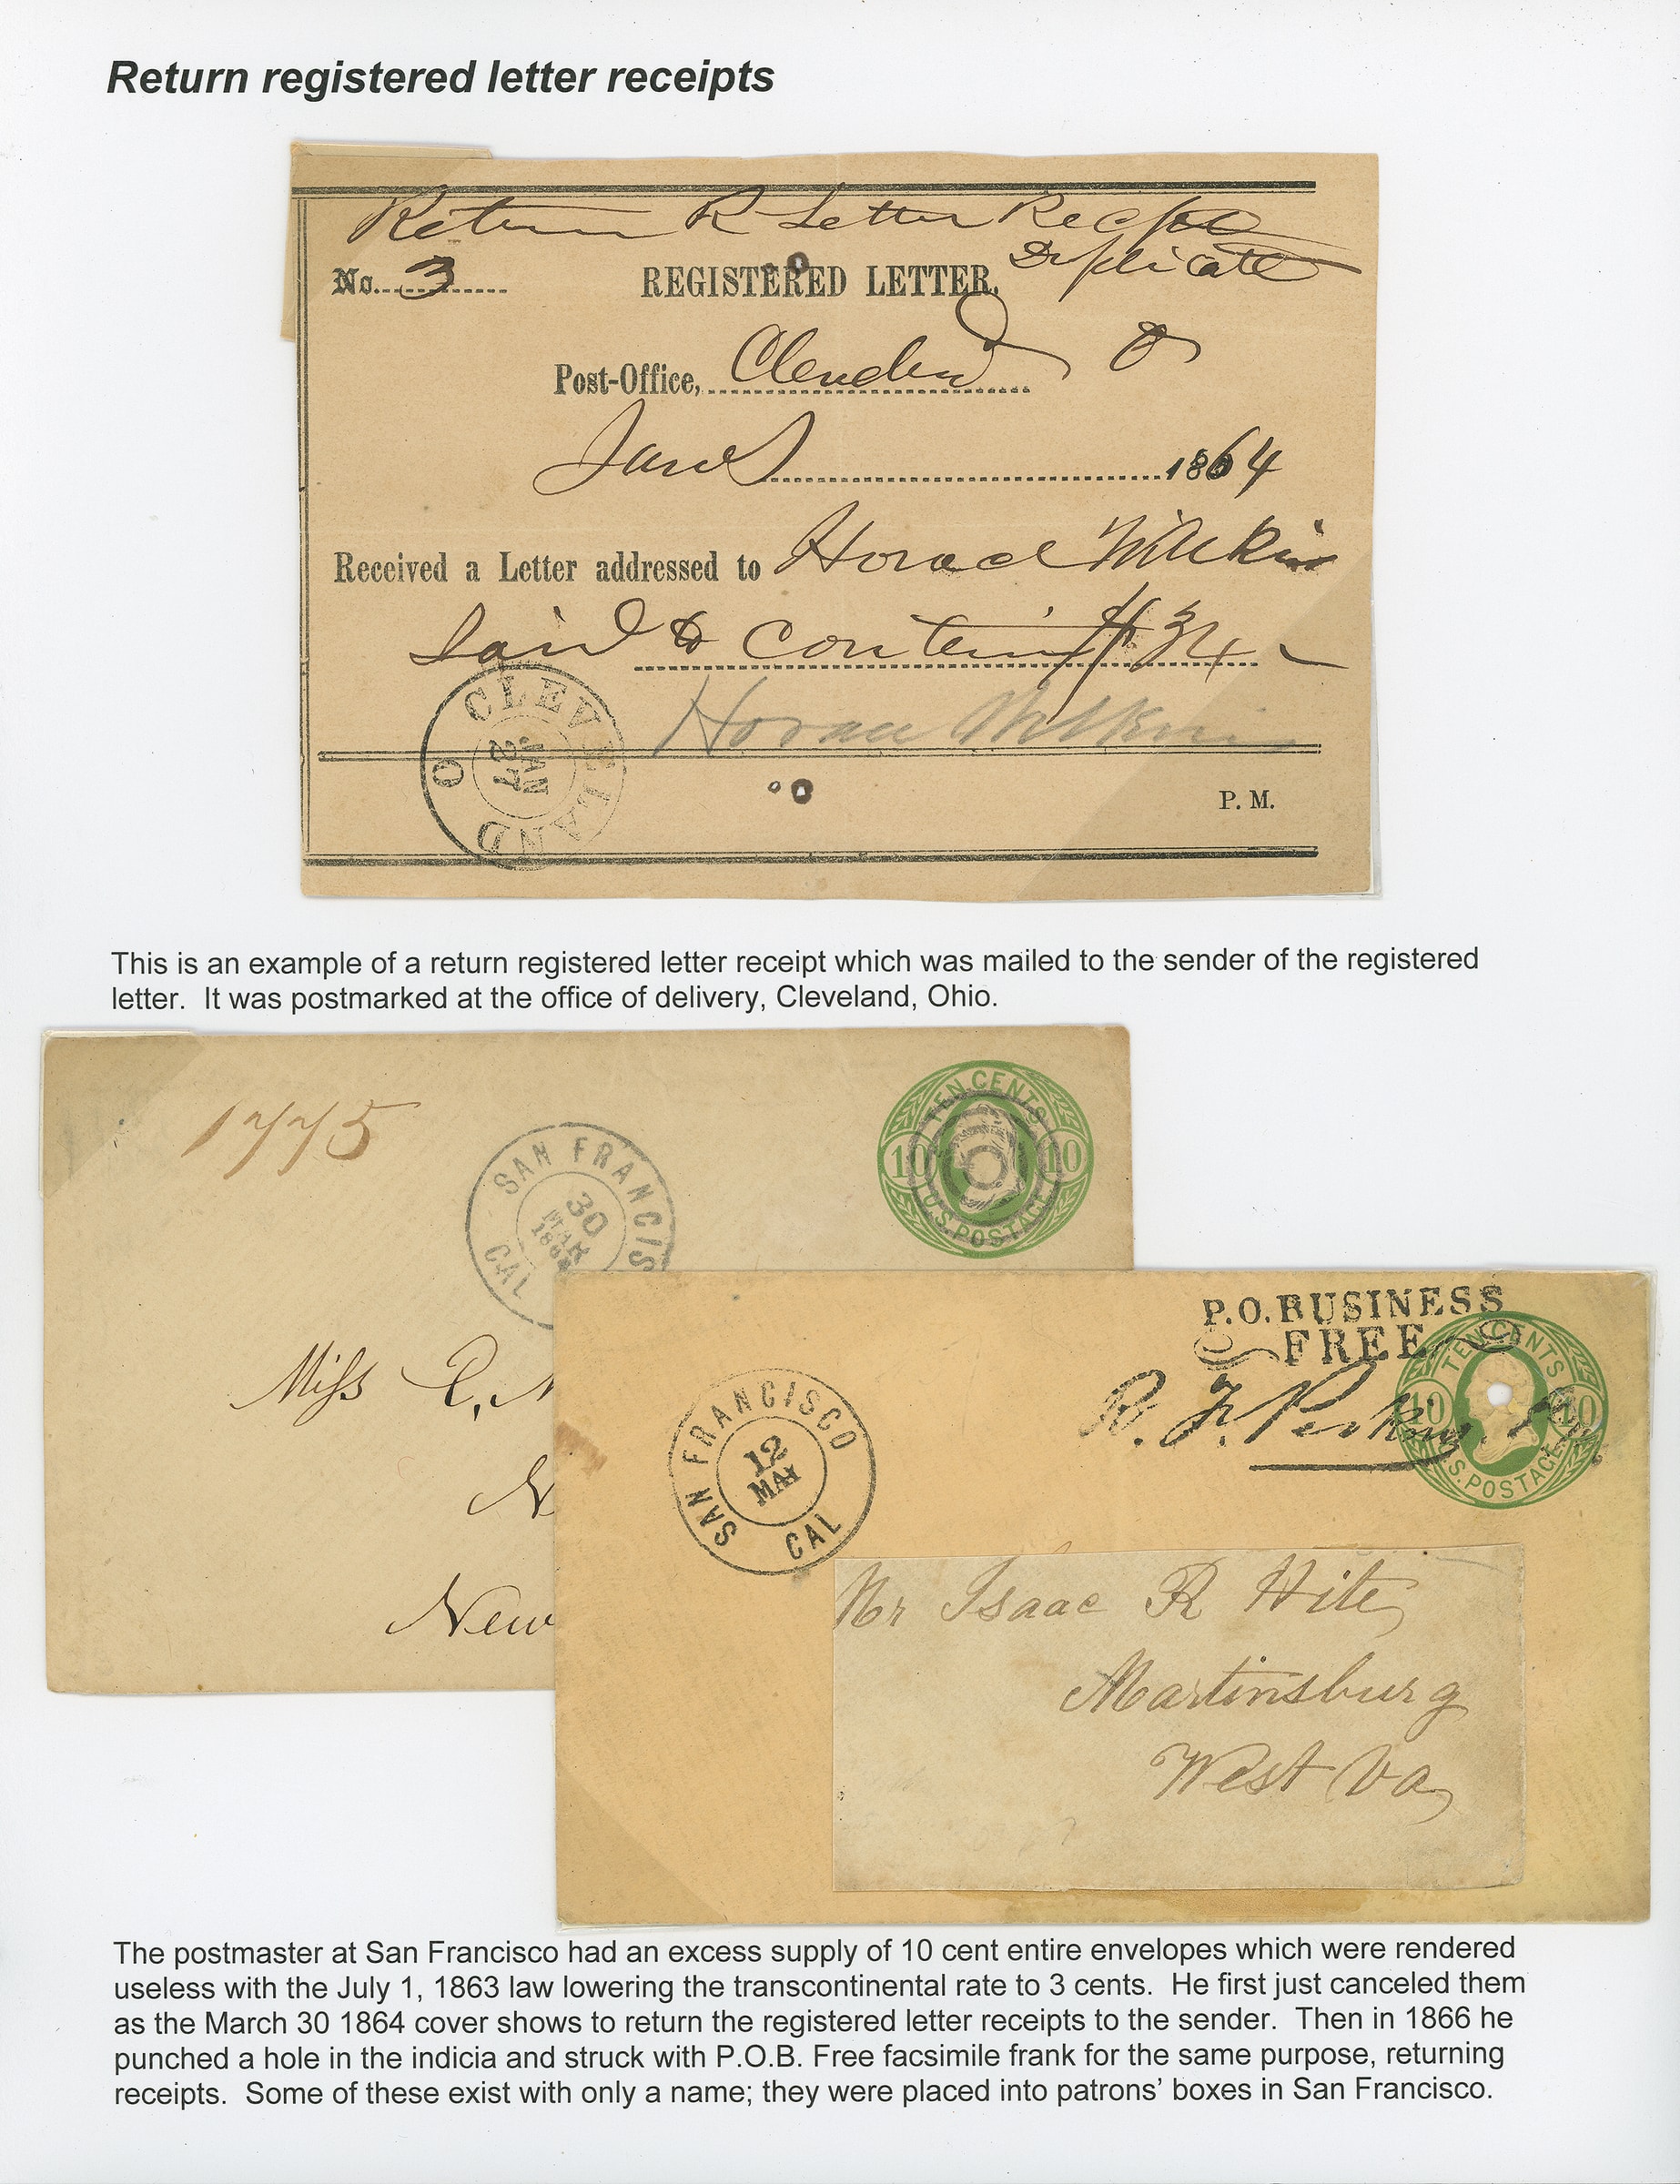 Return registered letter receipts
Return R Letter Recpt
Duplicate
No. 3 REGISTERED LETTER.
Post-Office, Cleveland O
Jany 1864
Received a Letter addressed to Horace Wilkins
Said to contain $34
Horace Wilkins
CLEVELAND O
JAN 27
P. M.
This is an example of a return registered letter receipt which was mailed to the sender of the registered
letter. It was postmarked at the office of delivery, Cleveland, Ohio.
1775
SAN FRANCIS
CAL
30
MAR
TEN CENTS
10 10
U.S. POSTAGE
Miss
New
P.O. BUSINESS
FREE
R. F. Perkins
TEN CENTS
10 10
U.S. POSTAGE
SAN FRANCISCO
CAL
12
MAY
Mr Isaac R Hite
Martinsburg
West Va
The postmaster at San Francisco had an excess supply of 10 cent entire envelopes which were rendered
useless with the July 1, 1863 law lowering the transcontinental rate to 3 cents. He first just canceled them
as the March 30 1864 cover shows to return the registered letter receipts to the sender. Then in 1866 he
punched a hole in the indicia and struck with P.O.B. Free facsimile frank for the same purpose, returning
receipts. Some of these exist with only a name; they were placed into patrons’ boxes in San Francisco.